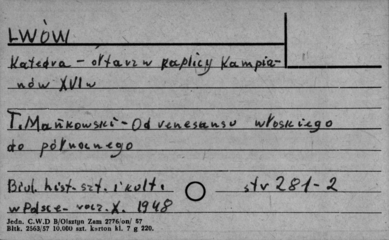 LWÓW
Katedra – ołtarz w kaplicy Kampia-
nów XVI w
T. Mańkowski – Od renesansu włoskiego
do północnego
Biul. hist. szt. i kult. str 281-2
w Polsce – rocz. X. 1948
Jedn. C.W.D B/Olsztyn Zam 2776/on/ 57
Bltk. 2563/57 10.000 szt. karton kl. 7 g 220.